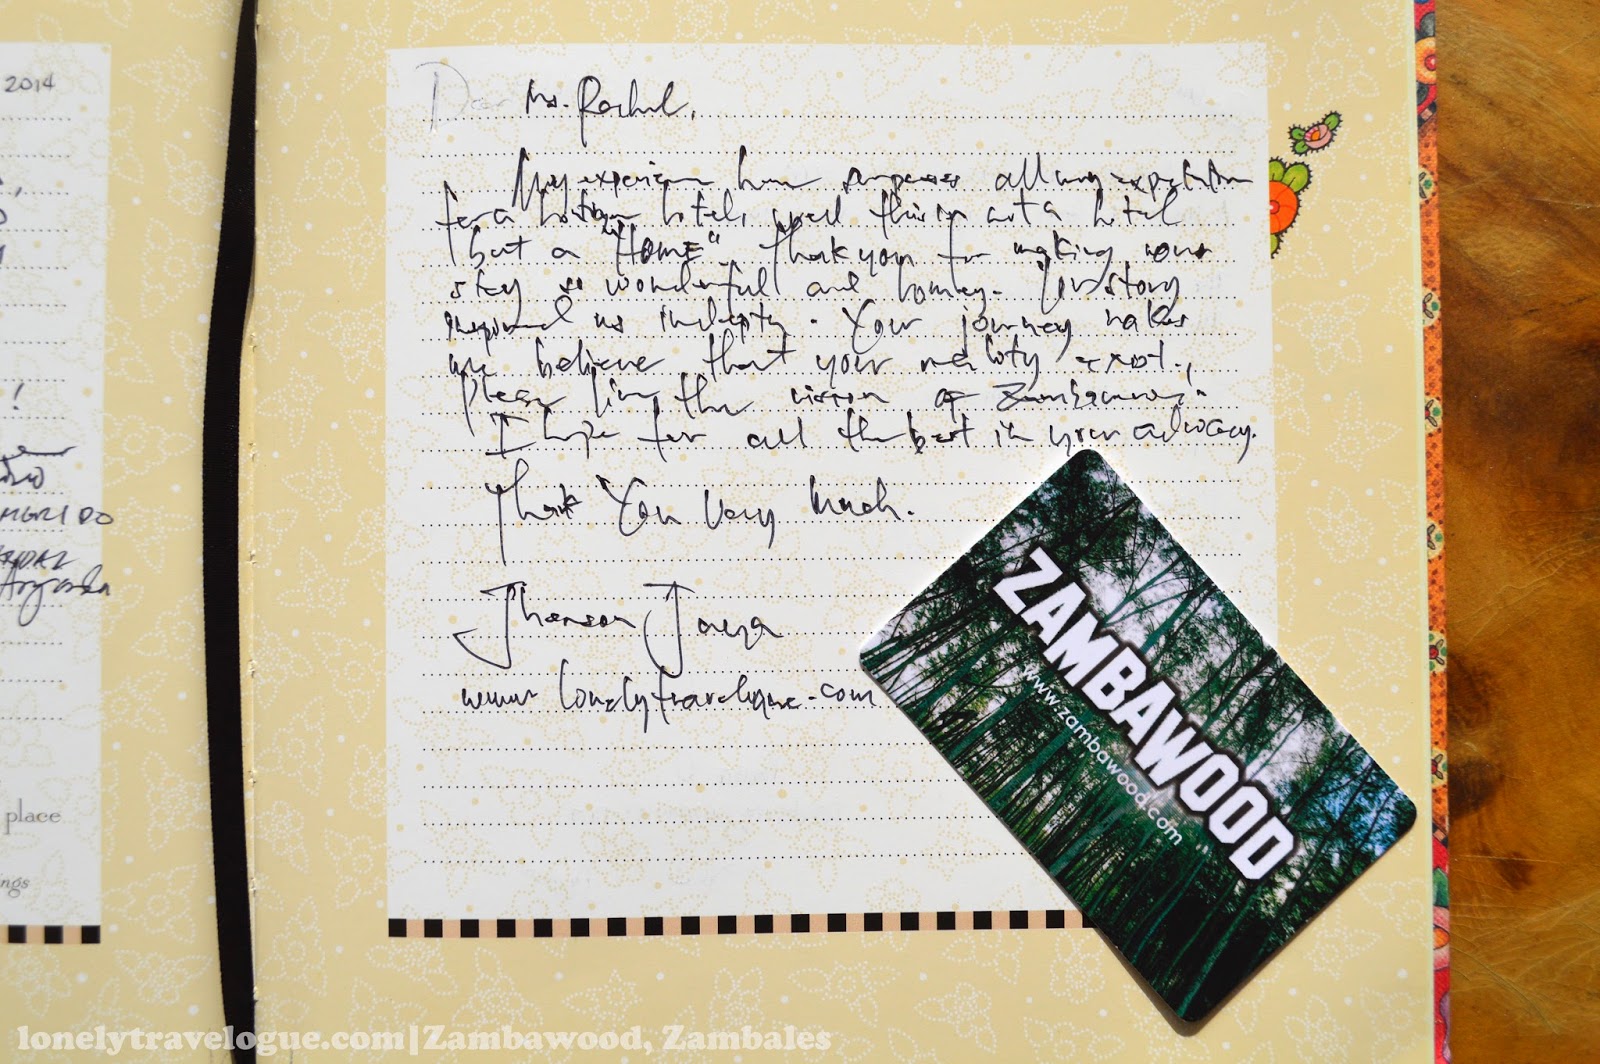 2014
!
MERIDO
place
ngs
Dear Ms. Rachel,
My experience here surpasses all my expectation
for a hotel, well this is not a hotel
but a "HOME". Thank you for making our
stay so wonderful and homey. Your story
inspired us indeply. Your journey makes
me believe that your reality exist.,
Please live the vision of Zambawood.
I hope for all the best in your advocacy.
Thank You Very Much.
Jhanson Jaya
www lonelytravelogue.com
ZAMBAWOOD
www.zambawood.com
lonelytravelogue.com|Zambawood, Zambales